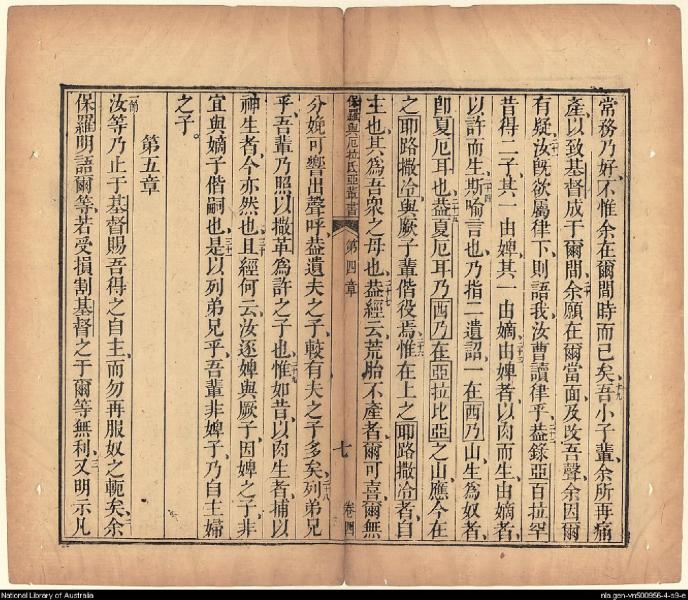 常務乃好不惟余在爾間時而已矣十九吾小子輩余所再痛
產以致基督成于爾間二十余願在爾當面及改吾聲余因爾
有疑二十一汝旣欲屬律下則語我汝曹讀律乎二十二蓋錄亞百拉罕
昔得二子其一由婢其一由嫡二十三由婢者以肉而生由嫡者
以許而生二十四斯喻言也乃指二遺詔一在西乃山生為奴者
卽夏厄耳也二十五蓋夏厄耳乃西乃在亞拉比亞之山應今在
之耶路撒冷與厥子輩偕役焉二十六惟在上之耶路撒冷者自
主也其為吾眾之母也二十七蓋經云荒胎不產者爾可喜爾無
保羅與厄拉氏亞輩書 第四章 七 卷四
分娩可響出聲呼蓋遺夫之子較有夫之子多矣二十八列弟兄
乎吾輩乃照以撒革為許之子也二十九惟如昔以肉生者捕以
神生者今亦然也三十且經何云汝逐婢與厥子因婢之子非
宜與嫡子偕嗣也三十一是以列弟兄乎吾輩非婢子乃自主婦
之子
第五章
一節汝等乃止于基督賜吾得之自主而勿再服奴之軛矣二余
保羅明語爾等若受損割基督之于爾等無利三又明示凡
National Library of Australia
nla.gen-vn500956-4-s9-e